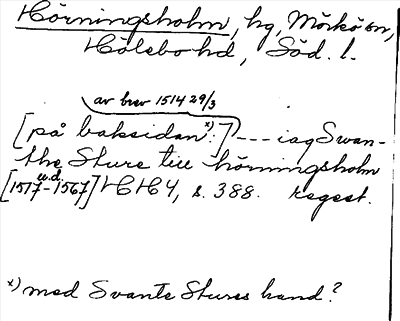 Hörningsholm, hg, Mörkö sn,
Hölebo hd, Söd. l.
av brev 1514 29/3
[på baksidan x):] --- iag Swan-
the Sture till hörningsholm
[1517 u.d. - 1567] HH 4, s. 388. Regest.
x) med Svante Stures hand?